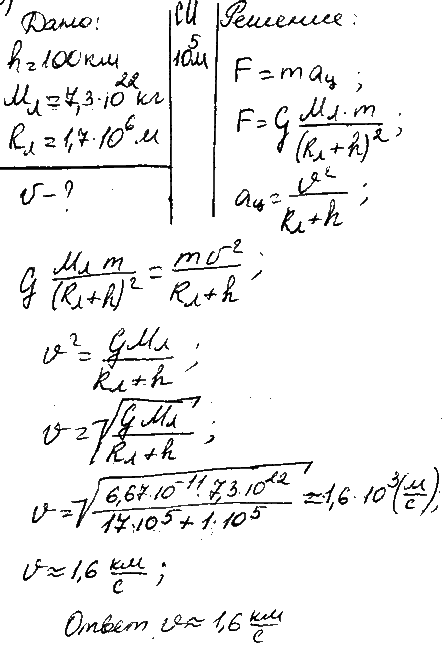 Дано:
h=100км
Mл=7,3·10²² кг
Rл=1,7·10⁶ м
v-?
СИ
10⁵м
Решение:
F=maц;
F=G Mл·m/(Rл+h)²;
aц=v²/(Rл+h);
G Mл m/(Rл+h)² = mv²/(Rл+h);
v²=GMл/(Rл+h);
v=√(GMл/(Rл+h));
v=√(6,67·10⁻¹¹·7,3·10²²/(17·10⁵+1·10⁵))≈1,6·10³(м/с);
v≈1,6 км/с;
Ответ v≈1,6 км/с